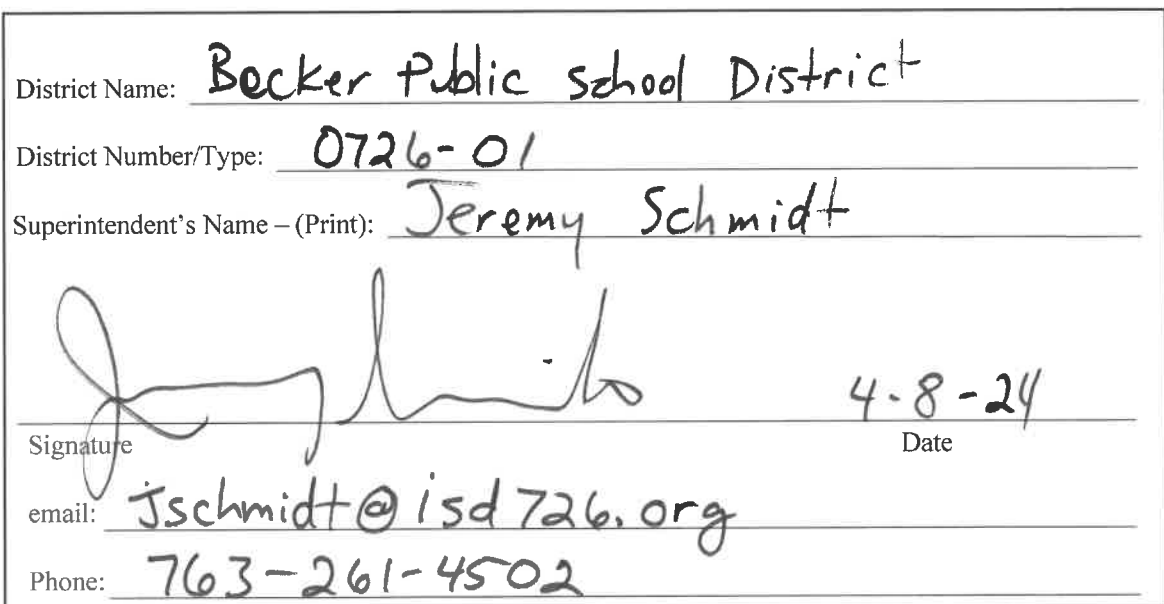 District Name: Becker Public School District
District Number/Type: 0726-01
Superintendent's Name – (Print): Jeremy Schmidt
4-8-24
Signature Date
email: jschmidt@isd726.org
Phone: 763-261-4502